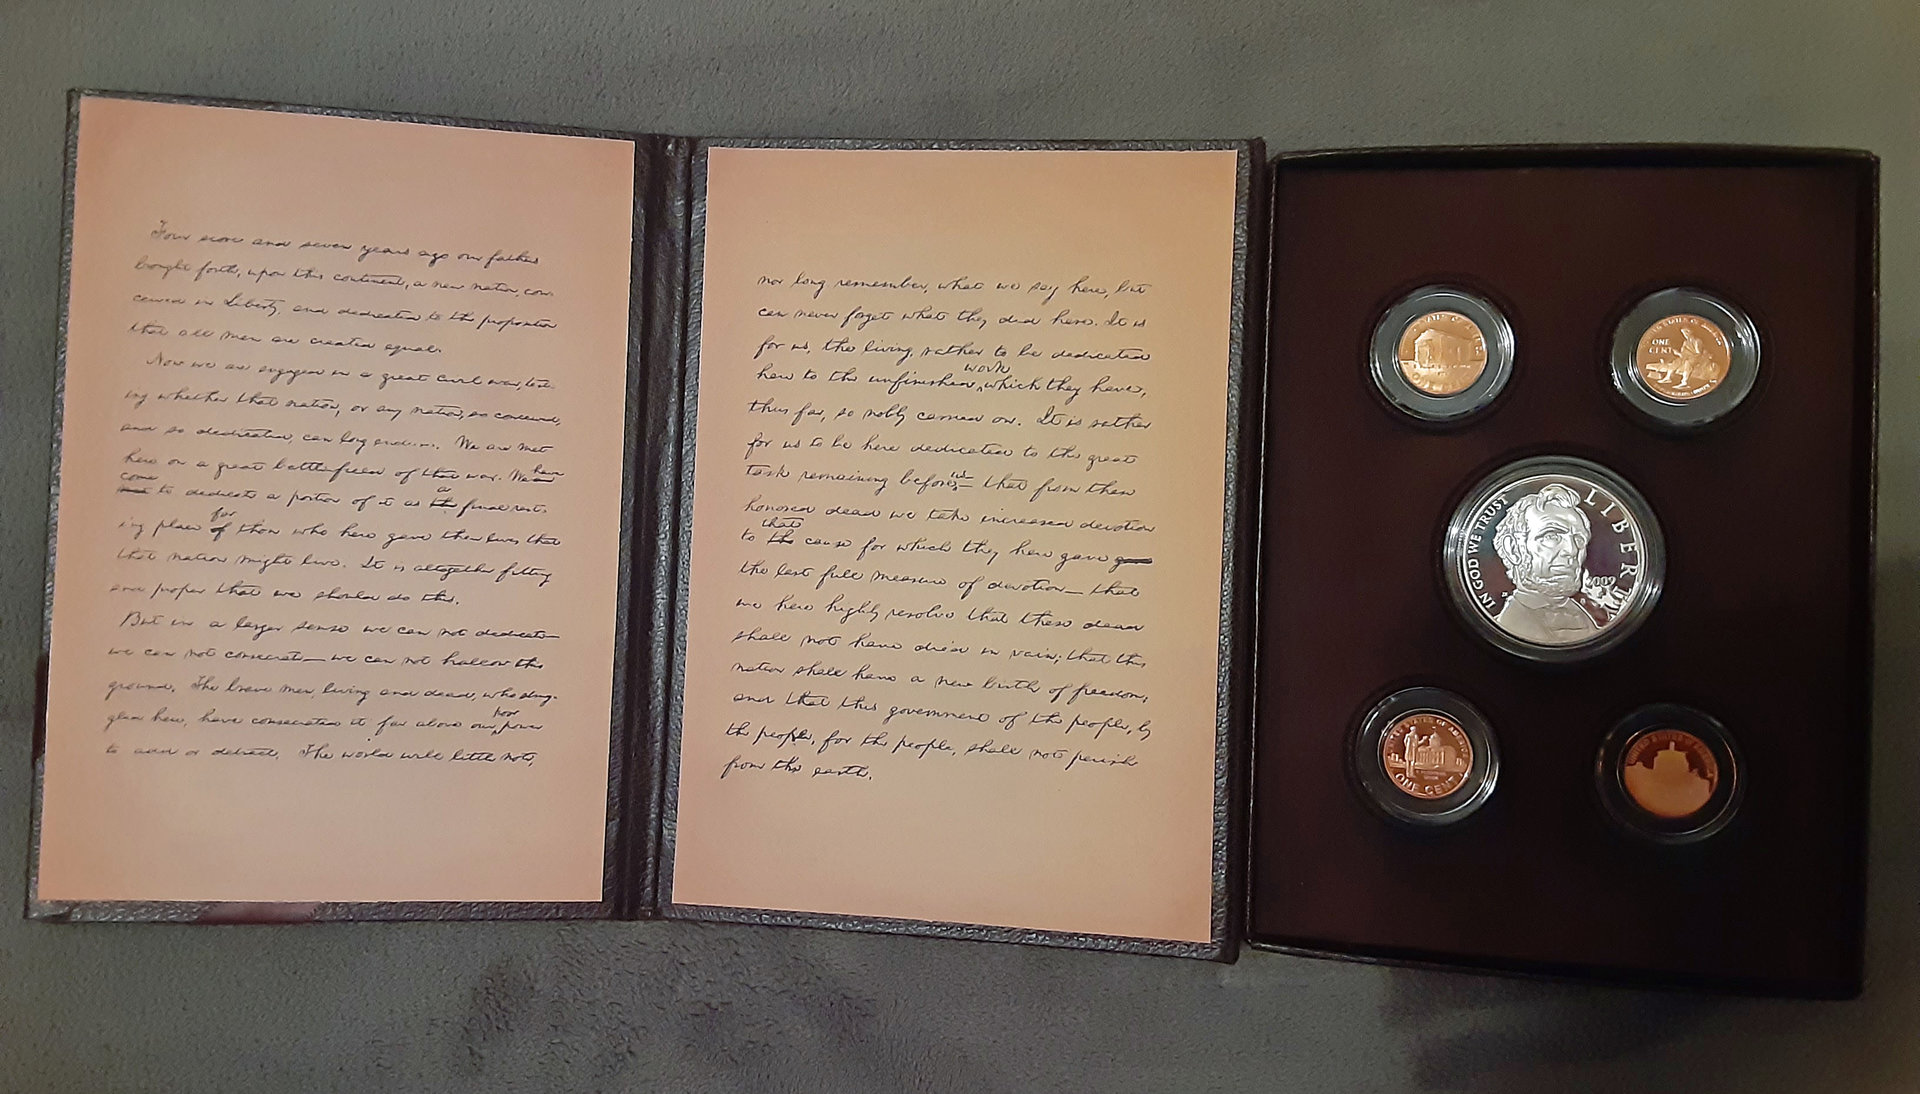 Four score and seven years ago our fathers
brought forth, upon this continent, a new nation, con-
ceived in Liberty, and dedicated to the proposition
that all men are created equal.
Now we are engaged in a great civil war, test-
ing whether that nation, or any nation, so conceived,
and so dedicated, can long endure. We are met
here on a great battlefield of that war. We are have
come met to dedicate a portion of it as the a final rest-
ing place of for those who here gave their lives that
that nation might live. It is altogether fitting
and proper that we should do this.
But in a larger sense we can not dedicate—
we can not consecrate— we can not hallow this
ground. The brave men, living and dead, who strug-
gled here, have consecrated it far above our poor power
to add or detract. The world will little note,
nor long remember, what we say here, but
can never forget what they did here. It is
for us, the living, rather to be dedicated
here to the unfinished work which they have,
thus far, so nobly carried on. It is rather
for us to be here dedicated to the great
task remaining before us— that from these
honored dead we take increased devotion
to the that cause for which they here gave gave
the last full measure of devotion— that
we here highly resolve that these dead
shall not have died in vain; that this
nation shall have a new birth of freedom;
and that this government of the people, by
the people, for the people, shall not perish
from the earth.
UNITED STATES OF AMERICA
ONE
CENT
IN GOD WE TRUST
LIBERTY
2009
UNITED STATES OF AMERICA
ONE CENT
UNITED STATES OF AMERICA